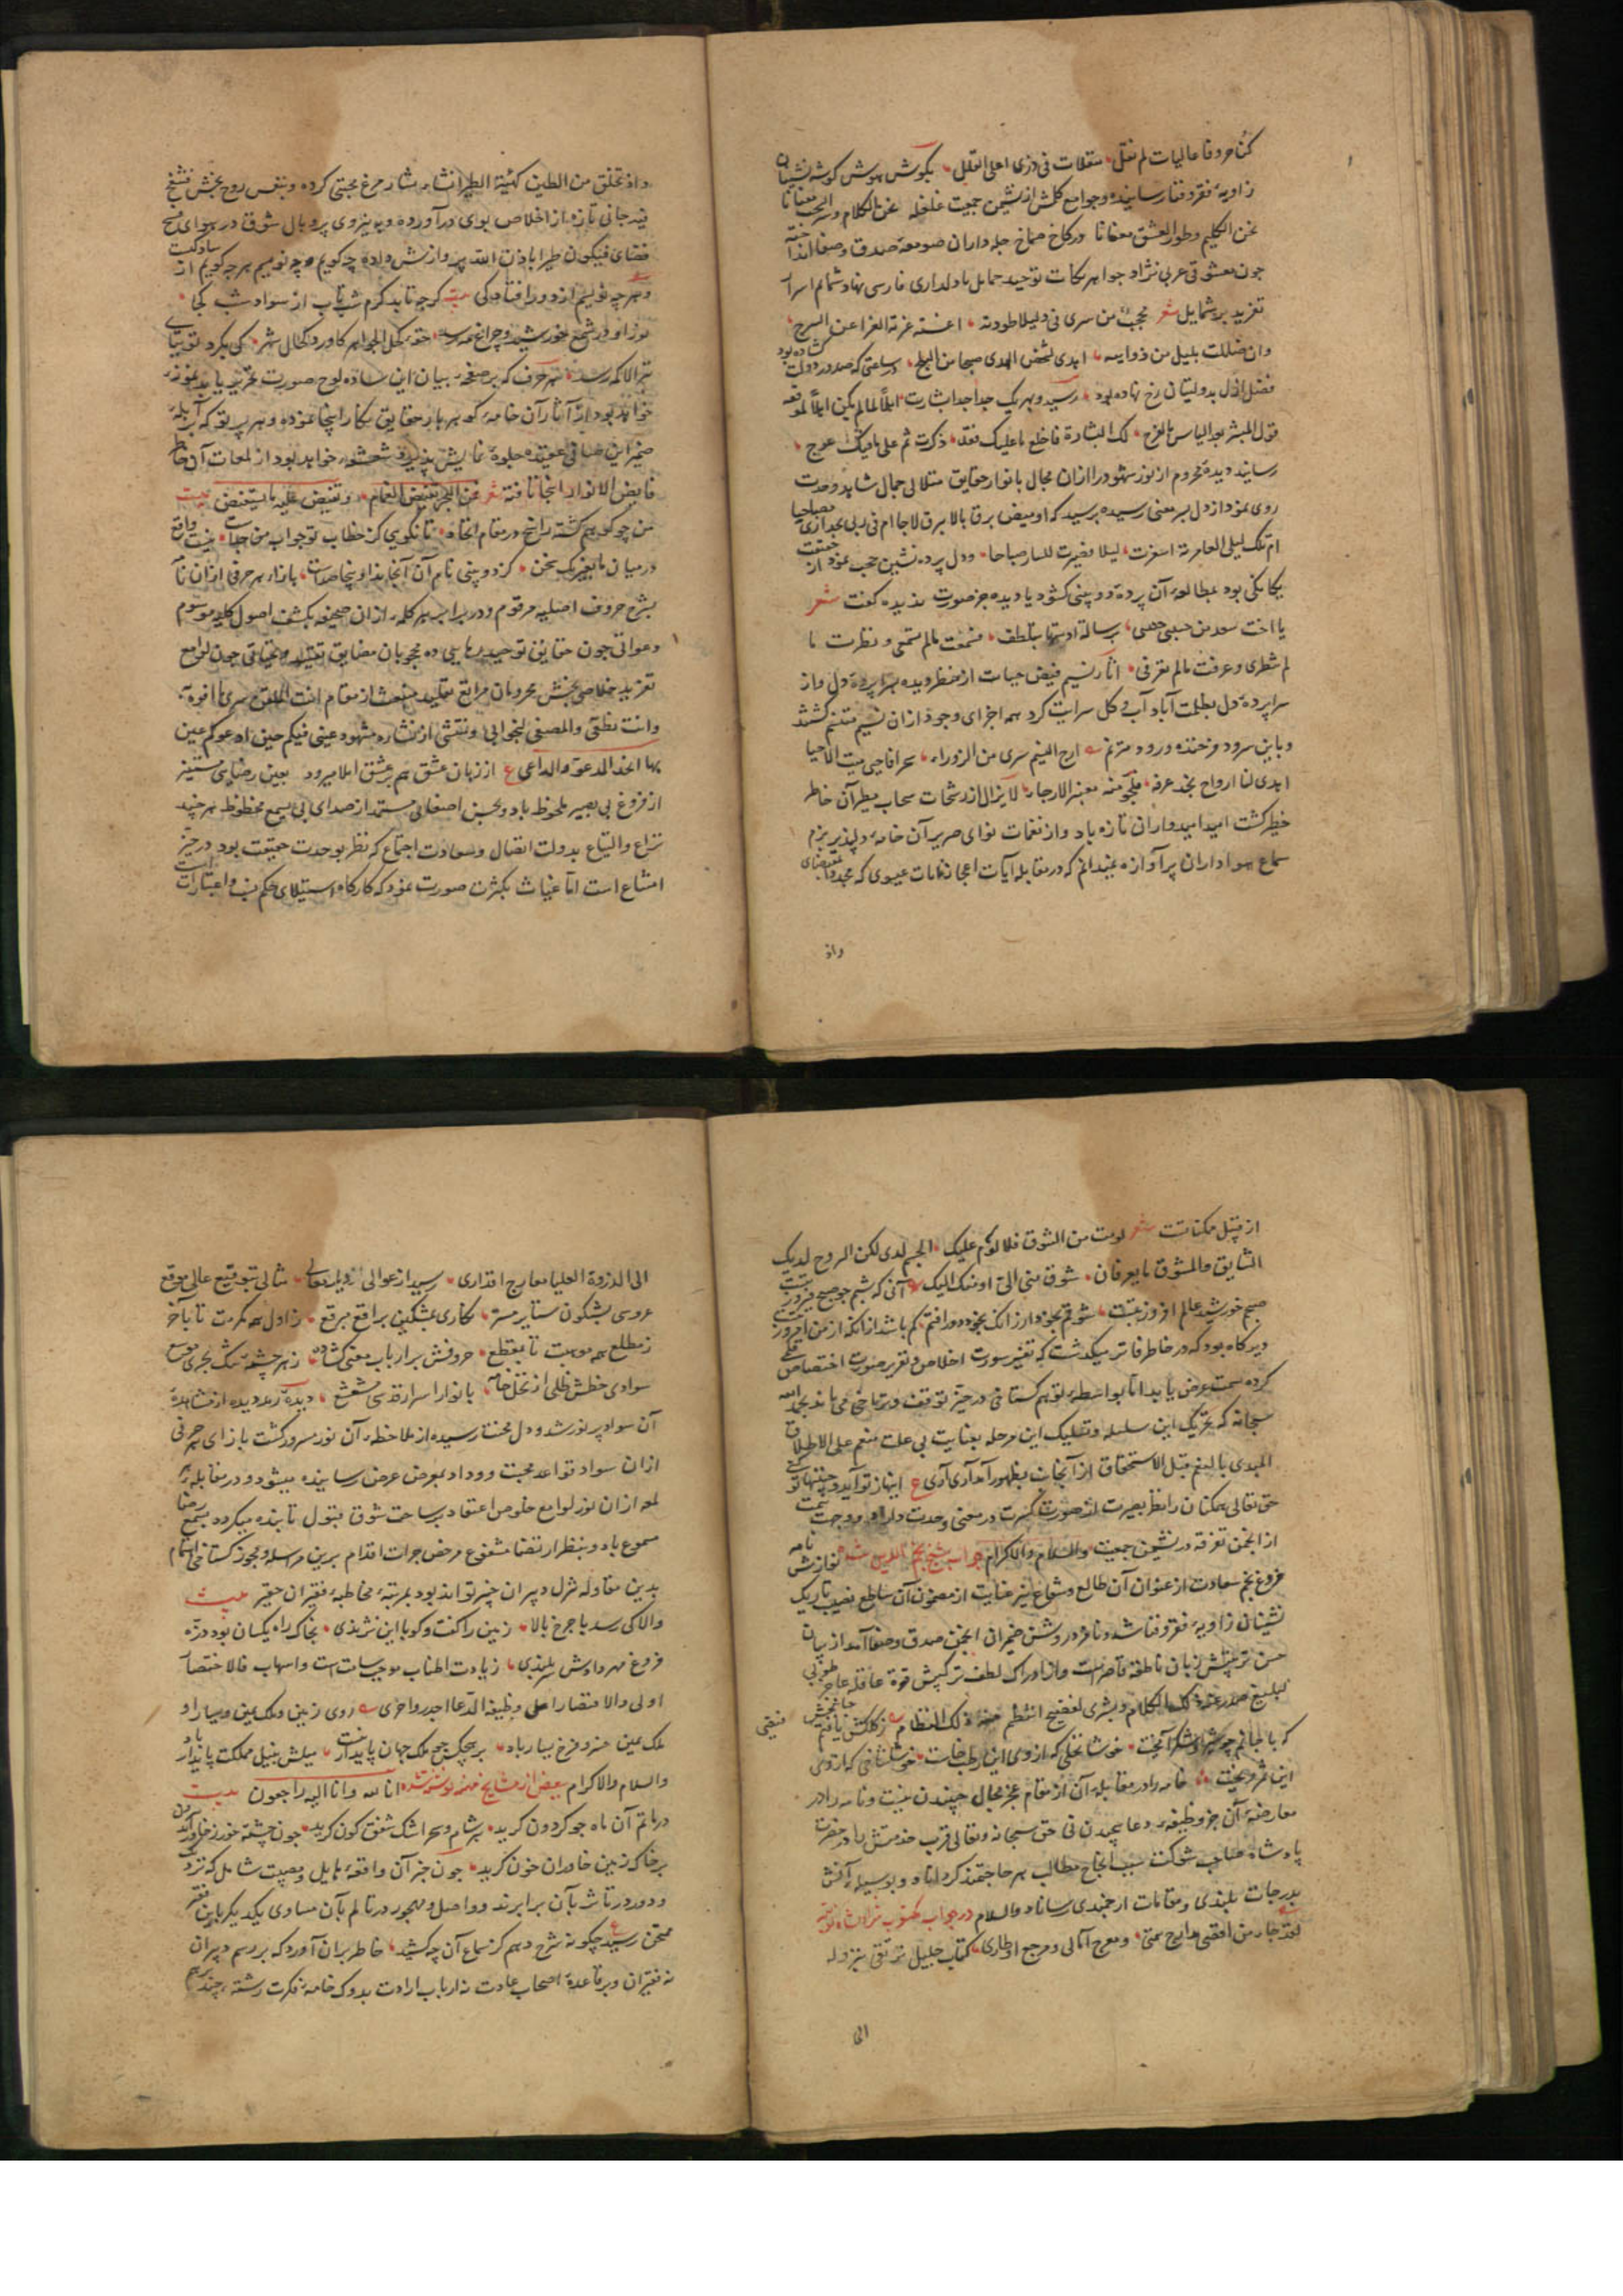 کنا حروفا عالیات لم نقل متعلقات فی ذری اعلی القلل بگوش هوش گوشه نشینان
زاویهٔ فقر و فنا رسانیده و جوامع کلمش از نشیمن جمعیت غلغله نحن الکلام و سر الحب معنانا
نحن الکلیم و طور العشق مغنانا در کاخ صماخ چله داران صومعهٔ صدق و صفا انداخته
چون معشوقی عربی نژاد جواهر نکات توحید حمایل با دلداری فارسی نهاد شمایم اسرار
تفرید بر شمایل شعر عجبت من سری فی لیلا طودته اغنته غرته الغرا عن السرج
وان ضللت بلیل من ذوایبه اهدی لشخص الهدی صبحا من البلج در ساعتی که صدور دولت گشاده بود
فضل ازل بدولتیان رخ نهاده بود رسید و بهر یک جدا جدا بشارت اهلا لما لم یکن اهلا لموقعه
قول المبشر بعد الیاس بالفرج لک البشارة فاخلع ما علیک فقد ذکرت ثم علی ما فیک عوج
رسانید دیدهٔ محروم از نور شهود را از آن مجال بانوار حقایق متلالی جمال شاهد وحدت
روی نمود از دل بر معنی رسیده پرسید که اومیض برق بالابیرق لاحا ام فی ربی نجد اری مصباحا
ام تلک لیلی العامریة اسفرت لیلا فصیرت المساء صباحا و دل پرده نشین حجب نمود از حقیقت
یکانکی بود بمطالعهٔ آن پرده دوبینی گشود یا دیده جز صورت ندیده گفت شعر
یا اخت سعد من حبیبی جئتنی برسالة ادیتها بتلطف فسمعت ما لم تسمعی و نظرت ما
لم تنظری و عرفت ما لم تعرفی آثار نسیم فیض حیات از منظر دیده بسراپردهٔ دل و از
سراپردهٔ دل بظلمت آباد آب و گل سرایت کرد همه اجزای وجود از آن نسیم متنسم گشتند
و باین سرود فرخنده ورود مترنم ارج النسیم سری من الزوراء سحرا فاحیی میت الاحیا
اهدی لنا ارواح نجد عرفه فالجو منه معنبر الارجاء لا یزال از رشحات سحاب مطر آن خاطر
خطیر کشت امید امیدواران تازه باد و از نغمات نوای صریر آن خامهٔ دلپذیر بزم
سماع هواداران پر آوازه نمیدانم که در مقابلهٔ آیات اعجاز نمایات عیسوی که بمقتضای
واذ
واذ تخلق من الطین کهیئة الطیر انشاء مرغ محبتی کرده و بنفس روح بخش فتنفخ
فیه جانی تازه از اخلاص بوی درآورده و بنیروی پر و بال شوق در هوای فسح
فضای فیکون طیرا باذن الله پروازش داده چه گویم و چه نویسم هر چه گویم از سادگیست
و هر چه نویسم از دور افتادگی بیت گرچه تابد کرم شب تاب از سواد شب کجا
نور او در شمع خورشید و چراغ مه رسد حقهٔ کحل الجواهر گاورد کحال شهر کی بگرد توتیای
نیر الاکمه رسد هر حرف که بر صفحهٔ بیان این ساده لوح صورت تحریر یابد نموداری
خواهد بود از آثار آن خامه که گهر بار حقایق نگار اینجا نموده و هر پرتو که برآینهٔ
ضمیر این صافی عقیده جلوهٔ نمایش پذیرد شعشعهٔ خواهد بود از لمعات آن خاطر
فایض الانوار اینجا تافته شعر نحن البحر تفیض الغمام و تفیض علیه ما یستفیض بیت
من چو کوهم گشته راسخ در مقام اتحاد تا نگویی کز خطاب تو جواب من جداست نیست واقع
در میان ما بغیر یک سخن کز دوبینی نام آن آنجا ندا و اینجا صداست بازاء هر حرفی از آن نامهٔ
بشرح حروف اصلیه مرقوم و در برابر هر کلمه از آن صحیفه بکشف اصول کلیه موسوم
و عواتی چون حقایق توحید رهایی ده محجوبان مضایق تقیید و تحیاتی چون لوامع
تفرید خلاصی بخش محرومان مراتع تقلید منبعث از مقام انت المتلق سری افوه
وانت نطقی والمصغی لنجوایی و منتشی از نشاهٔ شهود عینی فیکم حین ادعوکم عین
بها اتحد المدعو والداعی ع از زبان عشق هم بر عشق املا میرود بعین رضای مستنیر
از فروغ بی یبصر ملحوظ باد و بحسن اصغای مستمد از صدای بی یسمع محظوظ هر چند
نزاع و التیاع بدولت اتصال و سعادت اجتماع که نظر بوحدت حقیقت بود در حیز
امتناع است اما غیاث بکثرت صورت نمود که کارگاه استیلای حکم نسب و اعتبارات
از قبیل ممکنات است شعر لو مت من الشوق فلا لوم علیک الجسم لدی لکن الروح لدیک
الشایق والمشوق ما یعرفان شوق منی الی او منک الیک آنی که شبم چو صبح فیروز بتست
صبح خورشید عالم افروز بتست شوقم بخود ار زانک بخود در افتم کم باشد از آنکه از من امروز بتست
دیر گاه بود که در خاطر فاتر میگذشت که تفسیر سورت اخلاص و تقریر صورت اختصاص
کرده سمت عرض یابد اما بواسطهٔ توهم گستاخی در حیز توقف و تراخی می ماند بحمد الله
سبحانه که تحریک این سلسله و تسلیک این مرحله بعنایت بی علت منعم علی الاطلاق
المبدی بالنعم قبل الاستحقاق از آنجانب بظهور آمد آری آری ع اینها ز تو آید و چنینها تو کنی
حق تعالی همکنان را بنظر بصیرت از صورت کثرت در معنی وحدت داراد و وجهت همت
از انجمن تفرقه در نشیمن جمعیت والسلام والاکرام جواب شیخ نجم الدین نامه نوازش
فروغ نجم سعادت از عنوان آن طالع و شعاع نیر عنایت از مضمون آن ساطع نصیب تاریک
نشینان زاویهٔ فقر و فنا شد و نامزد روشن ضمیران انجمن صدق و صفا آمد از بیان
حسن ترتیبش زبان ناطقه قاصر است و از ادراک لطف ترکیبش قوهٔ عاقله عاجز طوبی
لبلیغ صدر عنه ذلک الکلام و بشری لفصیح انتظم منه ذلک النظام ز کلکش یافتم جانبخش فیضی
که با جانم چو شیر و شکر آمیخت خوشا نخلی که از وی این رطب خاست خوشا شاخی که از وی
این ثمر ریخت خامه را در مقابلهٔ آن از مقام عجز مجال جنبیدن نیست و نامه را در
معارضهٔ آن جز وظیفهٔ دعا پیچیدن نی حق سبحانه و تعالی قرب خدمتش را در حضرت
پادشاه صاحب شوکت سبب انجاح مطالب هر حاجتمند گرداناد و وسیله آفرینش
بدرجات بلندی و مقامات ارجمندی رساناد والسلام در جواب مکتوب
لقد جاء من اقصی مدارج همتی و معرج آمالی و مرجع اوطاری کتاب جلیل ترتقی بنزوله
الی
الی الذروة العلیا معارج اقداری رسید از عوالی مثالی بتوقیع عالی موقع
عروسی بشبگون ستایر مستر نگاری بمشکین براقع مبرقع ز اول همه مکرمت تا بآخر
ز مطلع همه موهبت تا بمقطع حروفش بر ارباب معنی گشاده ز هر چشمهٔ مشک بحری
سوادی خطش ظلی از نخل خامه بانوار اسرار قدسی مشعشع دیدهٔ رمد دیده از مشاهدهٔ
آن سواد پر نور شد و دل محنت رسیده از ملاحظهٔ آن نور مسرور گشت بازای هر حرفی
از آن سواد قواعد محبت و وداد بمعرض عرض رسانیده میشود و در مقابلهٔ هر
لمعه از آن نور لوامع خلوص اعتقاد بر ساحت شوق قبول تابنده میگردد بسمع رضا
مسموع باد و بنظر ارتضا مشفوع مرخص جرات اقدام برین مراسله و مجوز گستاخی اهتمام
بدین مقاوله تنزل دبیران خبیر تواند بود بمرتبهٔ مخاطبهٔ فقیران حقیر بیت
والا کی رسد با چرخ بالا زمین را گفت و گو با این نژندی بخاک راه یکسان بود ذره
فروغ مهر دادش سربلندی زیادت اطناب موجب سامت است و اسهاب فالاختصار
اولی والاقتصار علی وظیفة الدعا اجدر و احری روی زمین و ملک یمین و یسار او
ملک یمین خسرو فرخ یسار باد بر هیچکس چو ملک جهان پایدار نیست میلش بنیل مملکت پایدار باد
والسلام والاکرام بعض از مشایخ انا لله وانا الیه راجعون بیت
در ماتم آن ماه چو گردون گریید بر شام و سحر اشک شفق گون گریید چون چشمهٔ خور ز خاوران
بر خاک زمین خاوران خون گریید چون خبر آن واقعهٔ هایل و مصیبت شامل که نزدیک
و دور در تاثر بآن برابرند و واصل و مهجور در تالم بآن مساوی یکدیگر باین فقیر
ممتحن رسید چگونه شرح دهم کز سماع آن چه کشید خاطر بران آورد که بر رسم دبیران
نه فقیران و بر قاعدهٔ اصحاب عادت نه ارباب ارادت بدوک خامهٔ فکرت رشتهٔ چند